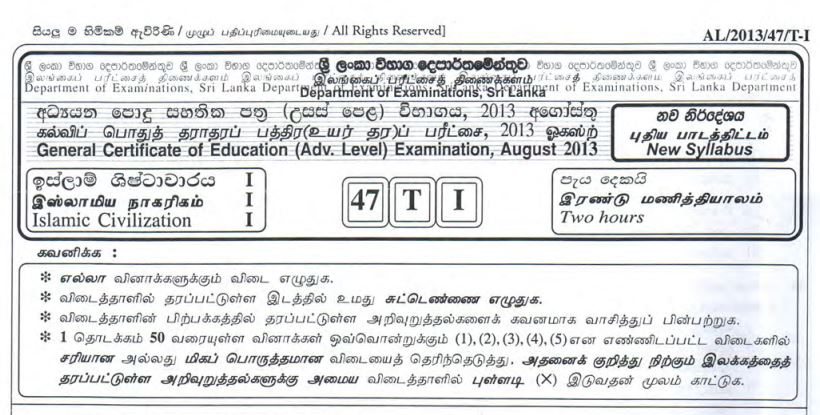 සියලු ම හිමිකම් ඇවිරිණි / முழுப் பதிப்புரிமையுடையது / All Rights Reserved]
AL/2013/47/T-I
ශ්‍රී ලංකා විභාග දෙපාර්තමේන්තුව
இலங்கைப் பரீட்சைத் திணைக்களம்
Department of Examinations, Sri Lanka
අධ්‍යයන පොදු සහතික පත්‍ර (උසස් පෙළ) විභාගය, 2013 අගෝස්තු
கல்விப் பொதுத் தராதரப் பத்திர(உயர் தர)ப் பரீட்சை, 2013 ஓகஸ்ற்
General Certificate of Education (Adv. Level) Examination, August 2013
නව නිර්දේශය
புதிய பாடத்திட்டம்
New Syllabus
ඉස්ලාම් ශිෂ්ටාචාරය I
இஸ்லாமிய நாகரிகம் I
Islamic Civilization I
47 T I
පැය දෙකයි
இரண்டு மணித்தியாலம்
Two hours
கவனிக்க :
* எல்லா வினாக்களுக்கும் விடை எழுதுக.
* விடைத்தாளில் தரப்பட்டுள்ள இடத்தில் உமது சுட்டெண்ணை எழுதுக.
* விடைத்தாளின் பிற்பக்கத்தில் தரப்பட்டுள்ள அறிவுறுத்தல்களைக் கவனமாக வாசித்துப் பின்பற்றுக.
* 1 தொடக்கம் 50 வரையுள்ள வினாக்கள் ஒவ்வொன்றுக்கும் (1), (2), (3), (4), (5) என எண்ணிடப்பட்ட விடைகளில்
சரியான அல்லது மிகப் பொருத்தமான விடையைத் தெரிந்தெடுத்து. அதனைக் குறித்து நிற்கும் இலக்கத்தைத்
தரப்பட்டுள்ள அறிவுறுத்தல்களுக்கு அமைய விடைத்தாளில் புள்ளடி (X) இடுவதன் மூலம் காட்டுக.